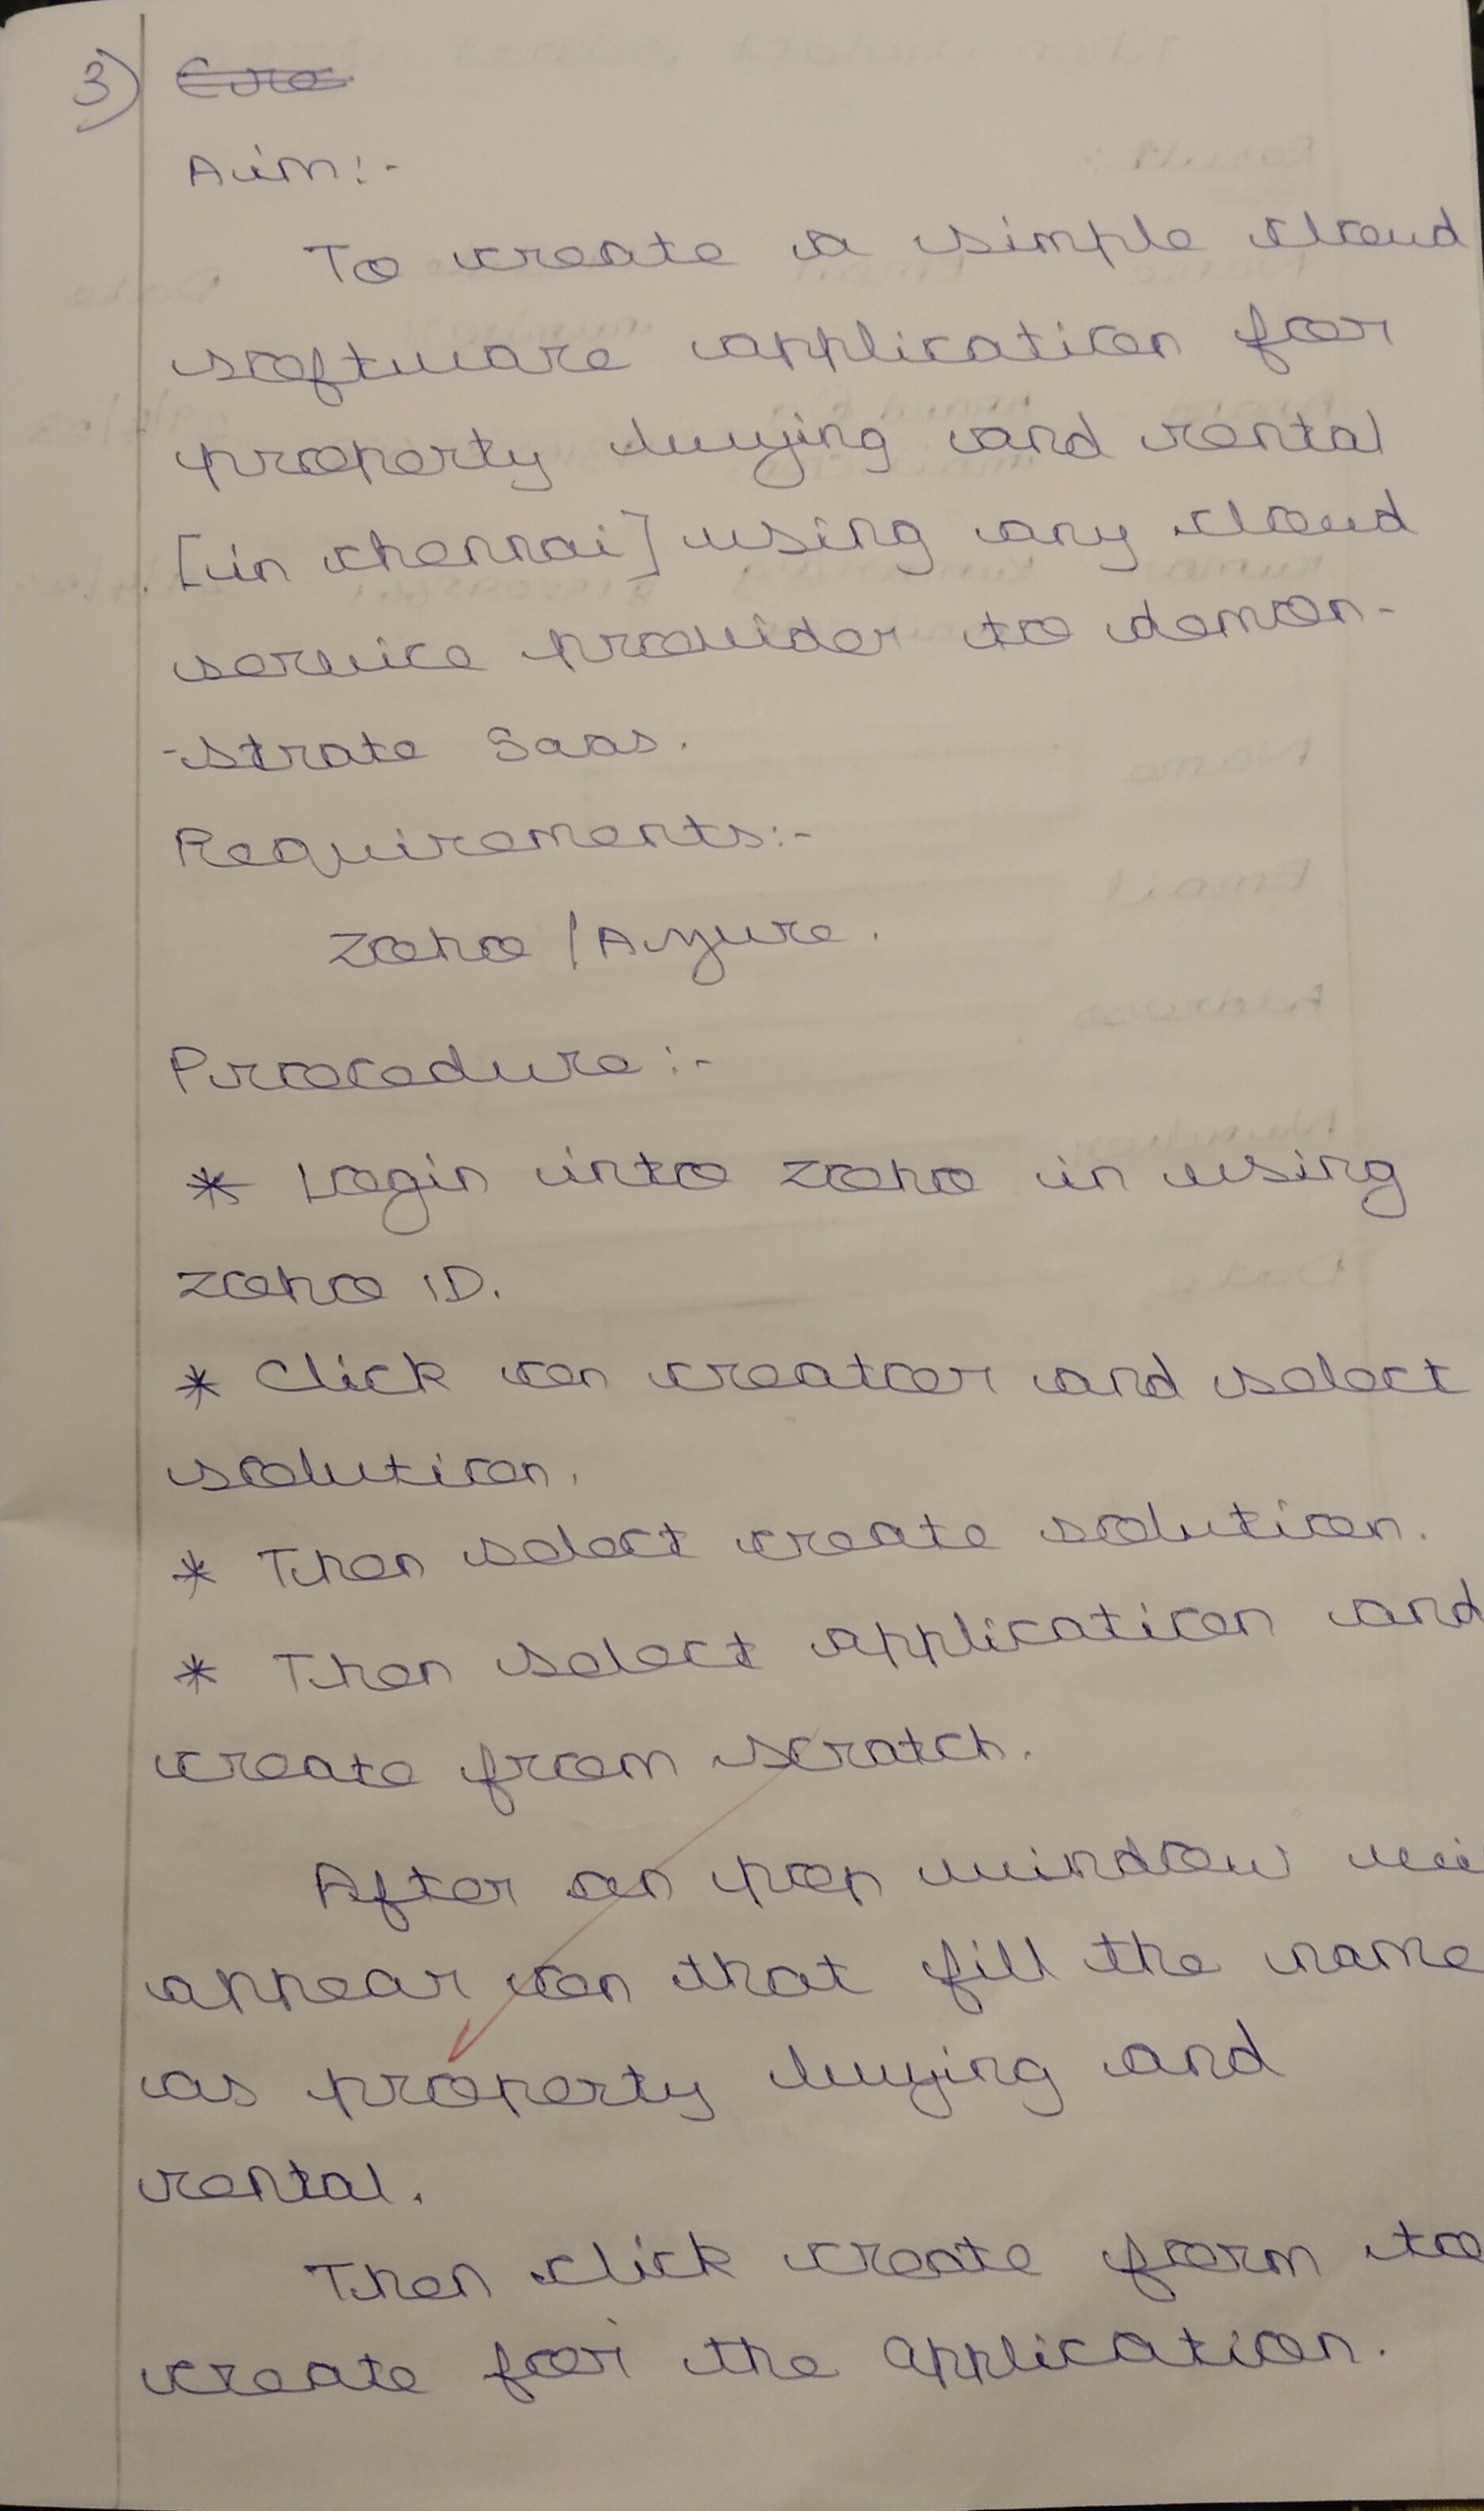 3)
Aim:-
To create a simple cloud
software application for
property buying and rental
[in chennai] using any cloud
service provider to demon-
-strate Saas.
Requirements:-
Zoho / Azure.
Procedure:-
* Login into zoho in using
zoho ID.
* Click on creator and select
solution.
* Then select create solution.
* Then select application and
create from scratch.
After an pop window
appear on that fill the name
as property buying and
rental.
Then click create form to
create for the application.